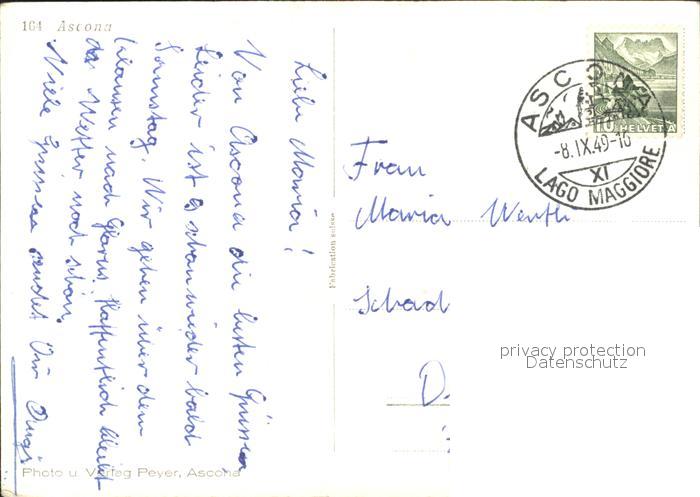 164 Ascona
Liebe Maria!
Von Ascona die besten Grüsse
Leider ist es schon wieder bald
Samstag. Wir gehen über den
Klausen nach Glarus. Hoffentlich bleibt
das Wetter noch schön.
Viele Grüsse sendet Dir
Photo u. Verlag Peyer, Ascona
Fabrication suisse
10 HELVETIA
ASCONA
-8.IX.49-16
XI
LAGO MAGGIORE
Frau
Maria
Schad
D.
privacy protection
Datenschutz